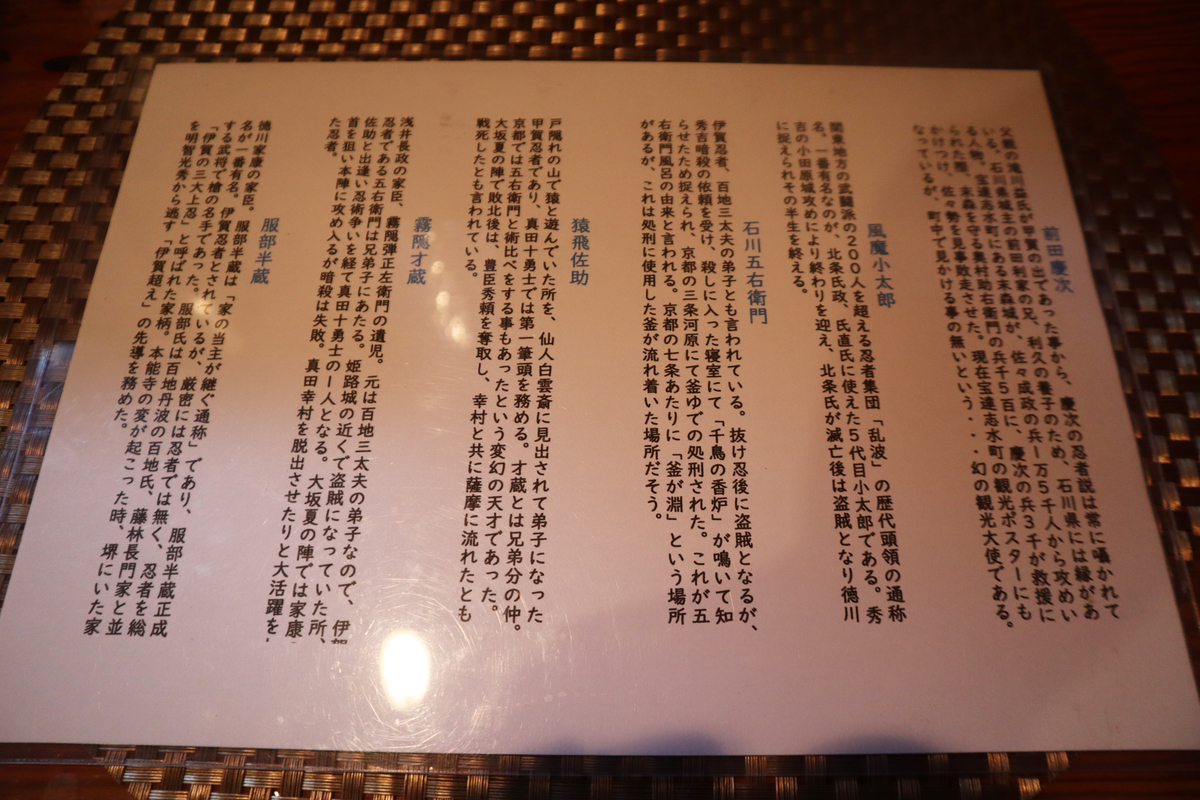 前田慶次
父親の滝川益氏が甲賀の出であった事から、慶次の忍者説は常に囁かれて
いる。石川県城主の前田利家の兄、利久の養子のため、石川県には縁があ
る人物。宝達志水町にある末森城が、佐々成政の兵一万5千人から攻めい
られた際、末森を守る奥村助右衛門の兵千5百に、慶次の兵3千が救援に
かけつけ、佐々勢を見事敗走させた。現在宝達志水町の観光ポスターにも
なっているが、町中で見かける事の無いという・・・幻の観光大使である。
風魔小太郎
関東地方の武闘派の200人を超える忍者集団「乱波」の歴代頭領の通称
名。一番有名なのが、北条氏政、氏直氏に使えた5代目小太郎である。秀
吉の小田原城攻めにより終わりを迎え、北条氏が滅亡後は盗賊となり徳川
に捉えられその半生を終える。
石川五右衛門
伊賀忍者、百地三太夫の弟子とも言われている。抜け忍後に盗賊となるが、
秀吉暗殺の依頼を受け、殺しに入った寝室にて「千鳥の香炉」が鳴いて知
らせたため捉えられ、京都の三条河原にて釜ゆでの処刑された。これが五
右衛門風呂の由来と言われる。京都の七条あたりに「釜が淵」という場所
があるが、これは処刑に使用した釜が流れ着いた場所だそう。
猿飛佐助
戸隠れの山で猿と遊んでいた所を、仙人白雲斎に見出されて弟子になった
甲賀忍者であり、真田十勇士では第一筆頭を務める。才蔵とは兄弟分の仲。
京都では五右衛門と術比べをする事もあったという変幻の天才であった。
大坂夏の陣で敗北後は、豊臣秀頼を奪取し、幸村と共に薩摩に流れたとも
戦死したとも言われている。
霧隠才蔵
浅井長政の家臣、霧隠弾正左衛門の遺児。元は百地三太夫の弟子なので、伊賀
忍者である五右衛門は兄弟子にあたる。姫路城の近くで盗賊になっていた所、
佐助と出逢い忍術争いを経て真田十勇士の一人となる。大坂夏の陣では家康の
首を狙い本陣に攻め入るが暗殺は失敗。真田幸村を脱出させたりと大活躍をし
た忍者。
服部半蔵
徳川家康の家臣。服部半蔵は「家の当主が継ぐ通称」であり、服部半蔵正成
名が一番有名。伊賀忍者とされているが、厳密には忍者では無く、忍者を総
する武将で槍の名手であった。服部氏は百地丹波の百地氏、藤林長門家と並
「伊賀の三大上忍」と呼ばれた家柄。本能寺の変が起こった時、堺にいた家
を明智光秀から逃す「伊賀超え」の先導を務めた。